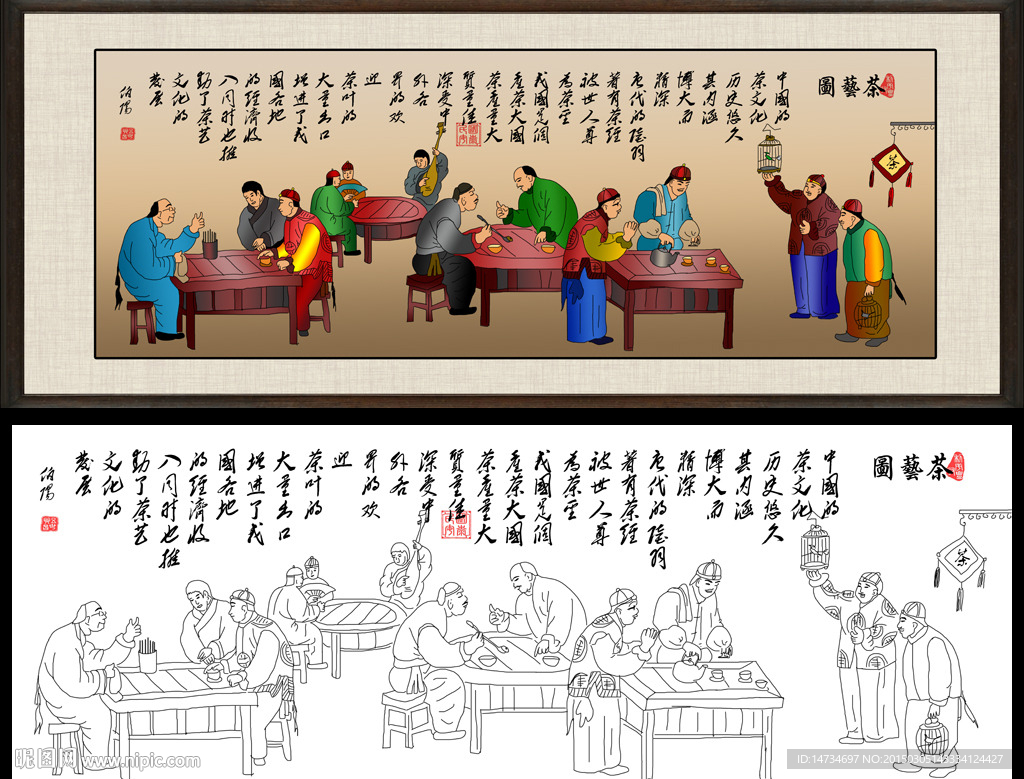 茶藝圖
中國的
茶文化
历史悠久
其内涵
博大而
精深
唐代的陸羽
著有茶经
被世人尊
为茶圣
我國是個
產茶大國
茶產量大
質量佳
深受中
外各
界的欢
迎
茶叶的
大量出口
增进了我
國各地
的经濟收
入同时也推
動了茶艺
文化的
发展
茶
茶藝圖
中國的
茶文化
历史悠久
其内涵
博大而
精深
唐代的陸羽
著有茶经
被世人尊
为茶圣
我國是個
產茶大國
茶產量大
質量佳
深受中
外各
界的欢
迎
茶叶的
大量出口
增进了我
國各地
的经濟收
入同时也推
動了茶艺
文化的
发展
茶
昵图网 www.nipic.com
ID:14734697 NO:20150305145334124427